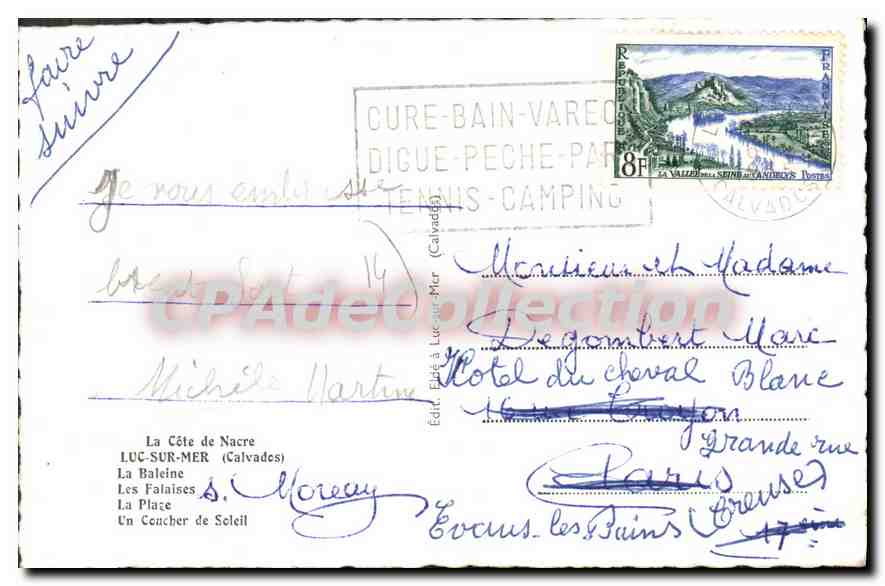 faire
suivre
CURE-BAIN-VAREC
DIGUE-PECHE-PAR
TENNIS-CAMPING
REPUBLIQUE FRANÇAISE
8F
LA VALLÉE DE LA SEINE AUX ANDELYS POSTES
CALVADOS
Je vous embrasse
14
Michèle Martine
CPAdeCollection
Édit. Eldé à Luc-sur-Mer (Calvados)
Monsieur et Madame
Degombert Marc
Hotel du cheval Blanc
16 rue Troyon
Grande rue
Paris
17 ème
Evaux-les-Bains (Creuse)
La Côte de Nacre
LUC-SUR-MER (Calvados)
La Baleine
Les Falaises
La Plage
Un Coucher de Soleil
S. Moreau